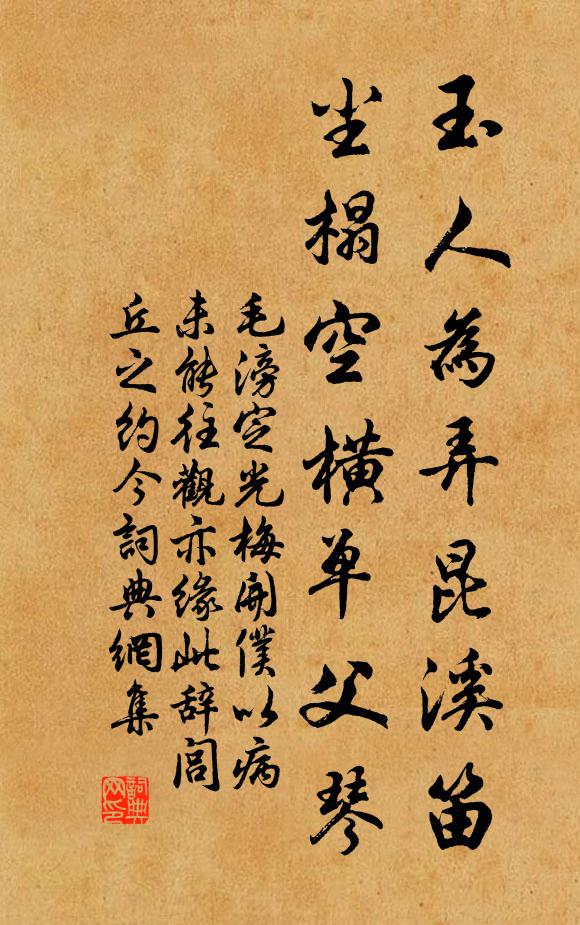 玉人為弄昆溪笛
尘榻空橫单父琴
毛滂定光梅開僕以病
未能往觀亦緣此辞閭
丘之約今詞典網集
詞典网印